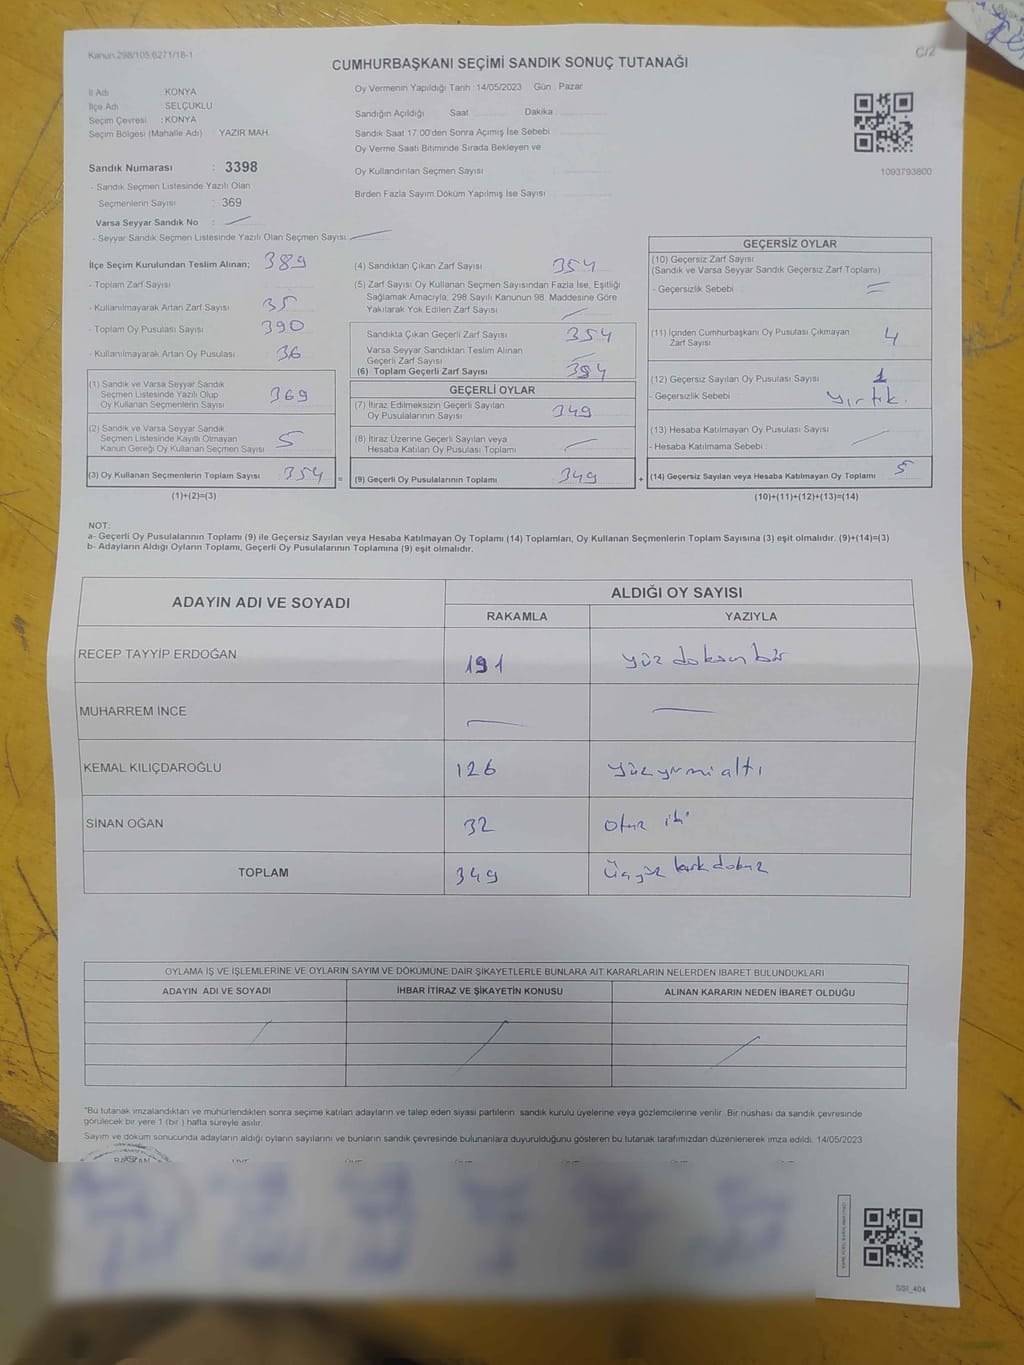 Kanun:298/105;6271/18-1
C/2
CUMHURBAŞKANI SEÇİMİ SANDIK SONUÇ TUTANAĞI
İl Adı KONYA
İlçe Adı SELÇUKLU
Seçim Çevresi : KONYA
Seçim Bölgesi (Mahalle Adı) : YAZIR MAH.
Sandık Numarası : 3398
- Sandık Seçmen Listesinde Yazılı Olan
Seçmenlerin Sayısı : 369
Varsa Seyyar Sandık No :
- Seyyar Sandık Seçmen Listesinde Yazılı Olan Seçmen Sayısı:
Oy Vermenin Yapıldığı Tarih : 14/05/2023 Gün : Pazar
Sandığın Açıldığı Saat Dakika
Sandık Saat 17.00'den Sonra Açımış İse Sebebi
Oy Verme Saati Bitiminde Sırada Bekleyen ve
Oy Kullandırılan Seçmen Sayısı
Birden Fazla Sayım Döküm Yapılmış İse Sayısı
1093793800
İlçe Seçim Kurulundan Teslim Alınan; 389
- Toplam Zarf Sayısı
- Kullanılmayarak Artan Zarf Sayısı 35
- Toplam Oy Pusulası Sayısı 390
- Kullanılmayarak Artan Oy Pusulası 36
(1) Sandık ve Varsa Seyyar Sandık
Seçmen Listesinde Yazılı Olup
Oy Kullanan Seçmenlerin Sayısı 369
(2) Sandık ve Varsa Seyyar Sandık
Seçmen Listesinde Kayıtlı Olmayan
Kanun Gereği Oy Kullanan Seçmen Sayısı 5
(3) Oy Kullanan Seçmenlerin Toplam Sayısı 354
(1)+(2)=(3)
(4) Sandıktan Çıkan Zarf Sayısı 354
(5) Zarf Sayısı Oy Kullanan Seçmen Sayısından Fazla İse, Eşitliği
Sağlamak Amacıyla; 298 Sayılı Kanunun 98. Maddesine Göre
Yakılarak Yok Edilen Zarf Sayısı
Sandıkta Çıkan Geçerli Zarf Sayısı 354
Varsa Seyyar Sandıktan Teslim Alınan
Geçerli Zarf Sayısı
(6) Toplam Geçerli Zarf Sayısı 354
GEÇERLİ OYLAR
(7) İtiraz Edilmeksizin Geçerli Sayılan
Oy Pusulalarının Sayısı 349
(8) İtiraz Üzerine Geçerli Sayılan veya
Hesaba Katılan Oy Pusulası Toplamı
= (9) Geçerli Oy Pusulalarının Toplamı 349 +
GEÇERSİZ OYLAR
(10) Geçersiz Zarf Sayısı
(Sandık ve Varsa Seyyar Sandık Geçersiz Zarf Toplamı)
- Geçersizlik Sebebi
(11) İçinden Cumhurbaşkanı Oy Pusulası Çıkmayan
Zarf Sayısı 4
(12) Geçersiz Sayılan Oy Pusulası Sayısı 1
- Geçersizlik Sebebi : yırtık.
(13) Hesaba Katılmayan Oy Pusulası Sayısı
- Hesaba Katılmama Sebebi :
(14) Geçersiz Sayılan veya Hesaba Katılmayan Oy Toplamı 5
(10)+(11)+(12)+(13)=(14)
NOT:
a- Geçerli Oy Pusulalarının Toplamı (9) ile Geçersiz Sayılan veya Hesaba Katılmayan Oy Toplamı (14) Toplamları, Oy Kullanan Seçmenlerin Toplam Sayısına (3) eşit olmalıdır. (9)+(14)=(3)
b- Adayların Aldığı Oyların Toplamı, Geçerli Oy Pusulalarının Toplamına (9) eşit olmalıdır.
ADAYIN ADI VE SOYADI ALDIĞI OY SAYISI
RAKAMLA YAZIYLA
RECEP TAYYİP ERDOĞAN 191 yüz doksan bir
MUHARREM İNCE
KEMAL KILIÇDAROĞLU 126 yüz yirmi altı
SİNAN OĞAN 32 otuz iki
TOPLAM 349 Üçyüz kırk dokuz
OYLAMA İŞ VE İŞLEMLERİNE VE OYLARIN SAYIM VE DÖKÜMÜNE DAİR ŞİKAYETLERLE BUNLARA AİT KARARLARIN NELERDEN İBARET BULUNDUKLARI
ADAYIN ADI VE SOYADI İHBAR İTİRAZ VE ŞİKAYETİN KONUSU ALINAN KARARIN NEDEN İBARET OLDUĞU
*Bu tutanak imzalandıktan ve mühürlendikten sonra seçime katılan adayların ve talep eden siyasi partilerin sandık kurulu üyelerine veya gözlemcilerine verilir. Bir nüshası da sandık çevresinde
görülecek bir yere 1 (bir ) hafta süreyle asılır.
Sayım ve döküm sonucunda adayların aldığı oyların sayılarını ve bunların sandık çevresinde bulunanlara duyurulduğunu gösteren bu tutanak tarafımızdan düzenlenerek imza edildi. 14/05/2023
SSI_404